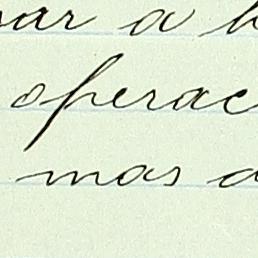 ar a b
operac
mas a